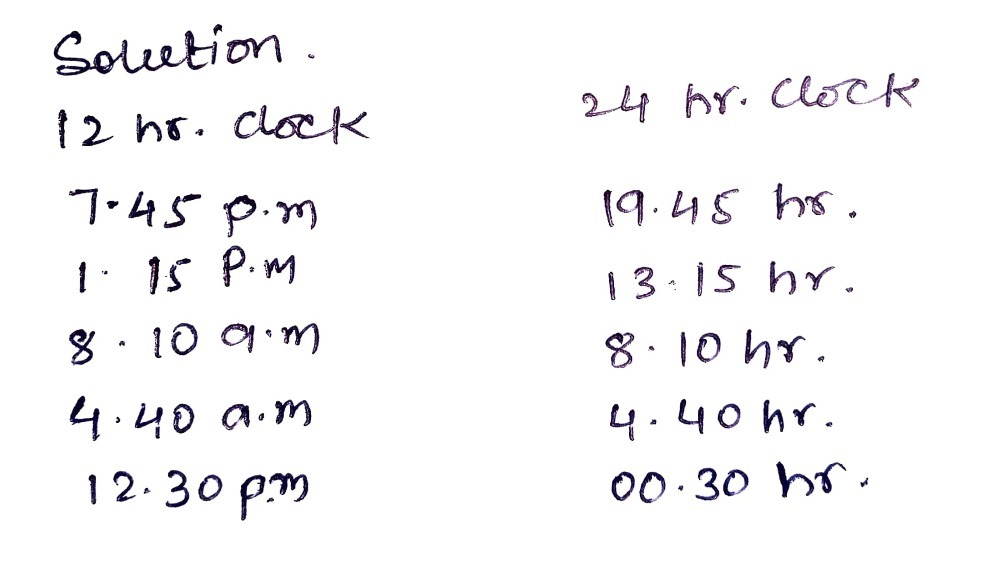 Solution.
12 hr. clock 24 hr. clock
7.45 p.m 19.45 hr.
1. 15 P.m 13.15 hr.
8.10 a.m 8.10 hr.
4.40 a.m 4.40 hr.
12.30 p.m 00.30 hr.